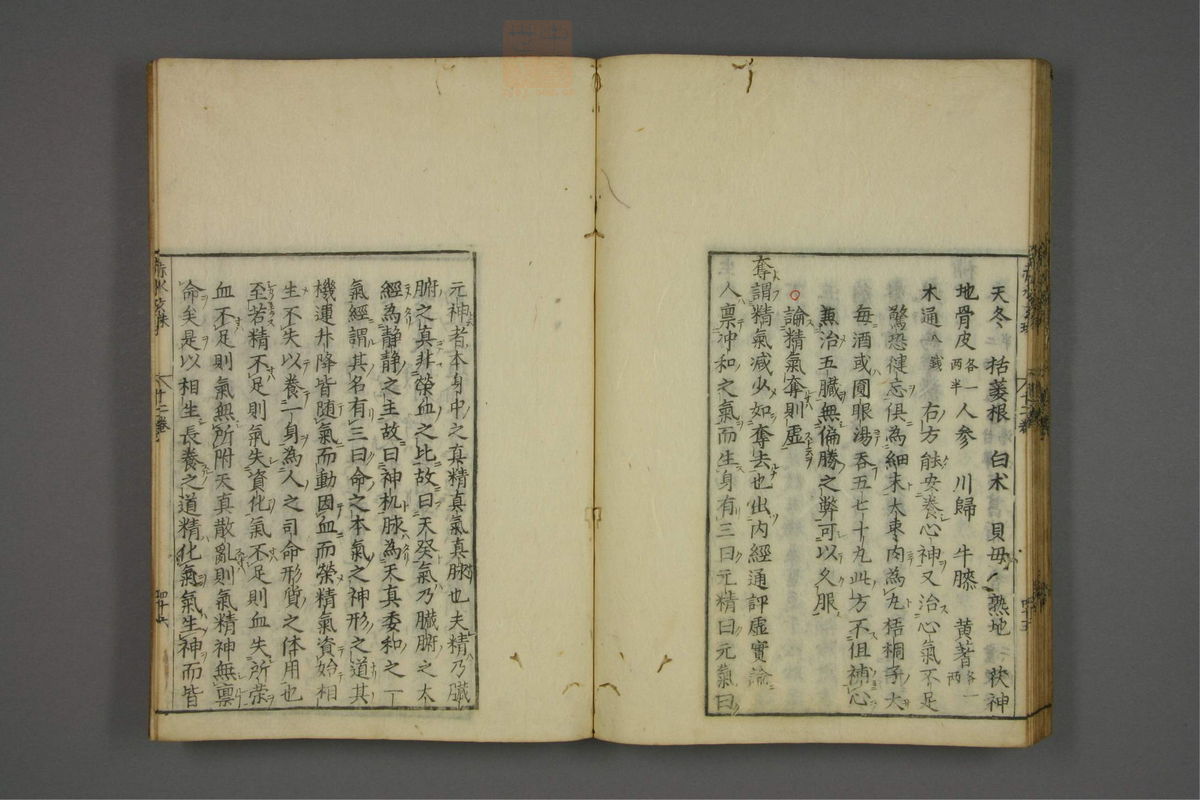 天冬 括蔞根 白术 貝母 熟地 茯神
地骨皮各一两半 人参 川歸 牛膝 黄蓍各一两
木通八錢 右方能安養心神又治心氣不足
驚恐徤忘俱為細末大枣肉為丸梧桐子大
每酒或圓眼湯吞五七十丸此方不但補心
兼治五臓無偏勝之弊可以久服
論精氣奪則虛
奪謂精氣减少如奪去也出内經通評虛實論
人禀冲和之氣而生身有三曰元精曰元氣曰
元神者本身中之真精真氣真脉也夫精乃臓
腑之真非榮血之比故曰天癸氣乃臓腑之太
經為静静之主故曰神机脉為天真委和之一
氣經謂其名有三曰命之本氣之神形之道其
機運升降皆随氣而動因血而榮精氣資始相
生不失以養一身為人之司命形質之体用也
至若精不足則氣失資化氣不足則血失所榮
血不足則氣無所附天真散亂則氣精神無禀
命矣是以相生長養之道精化氣氣生神而皆